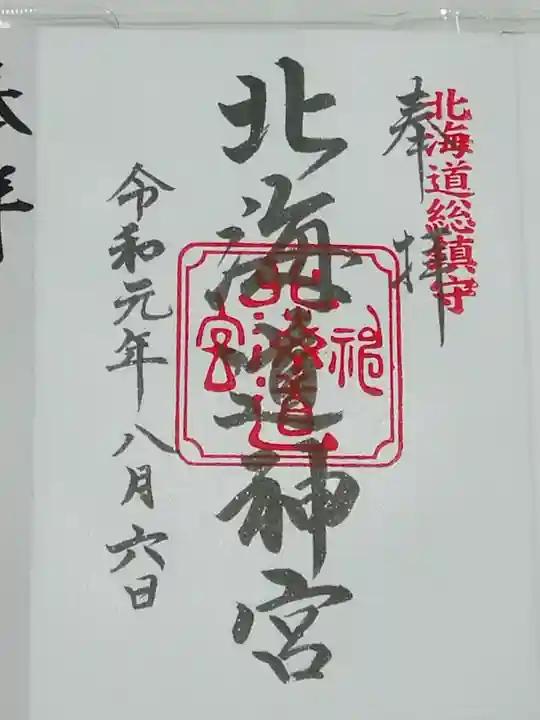 北海道総鎮守
奉拝
北海道神宮
北海道
神
宮
令和元年八月六日
奉拝